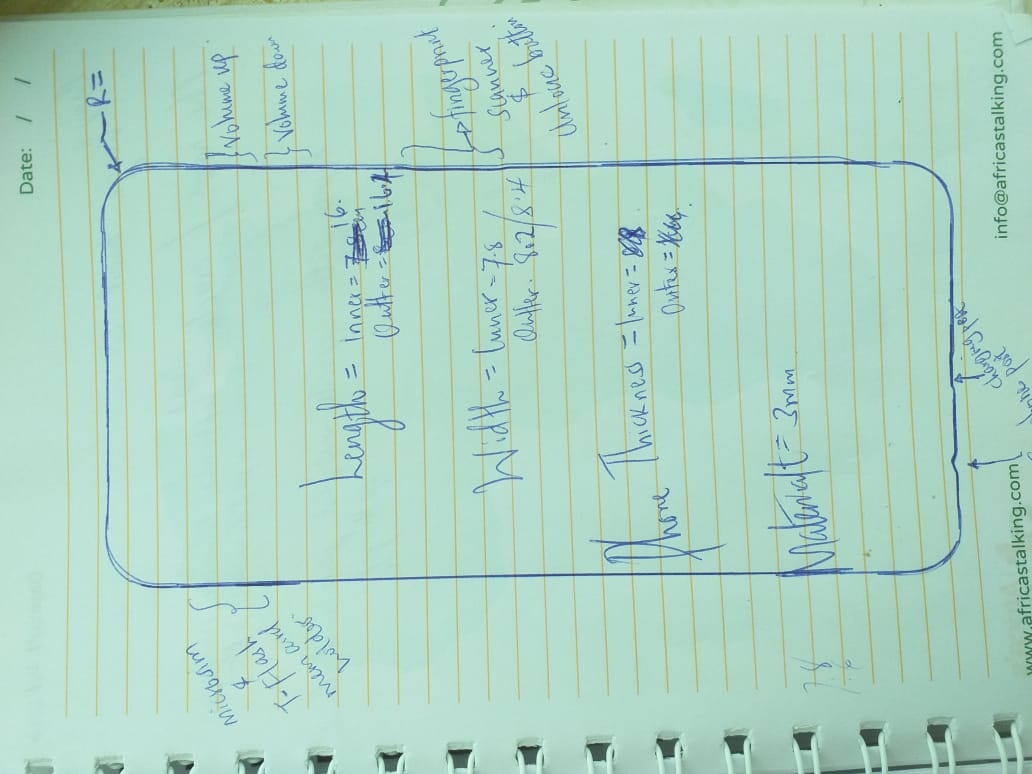 Date: / /
R =
} Volume up
} Volume down
fingerprint
scanner
&
Unlock button
Length = Inner = 16.
Outter = 16.4
Width = Inner = 7.8
Outter. 8.2/8.4
Phone Thickness = Inner =
Outter =
Material t = 3mm
microsim
&
T-Flash
mem card
holder.
charging port
7.8
www.africastalking.com
info@africastalking.com